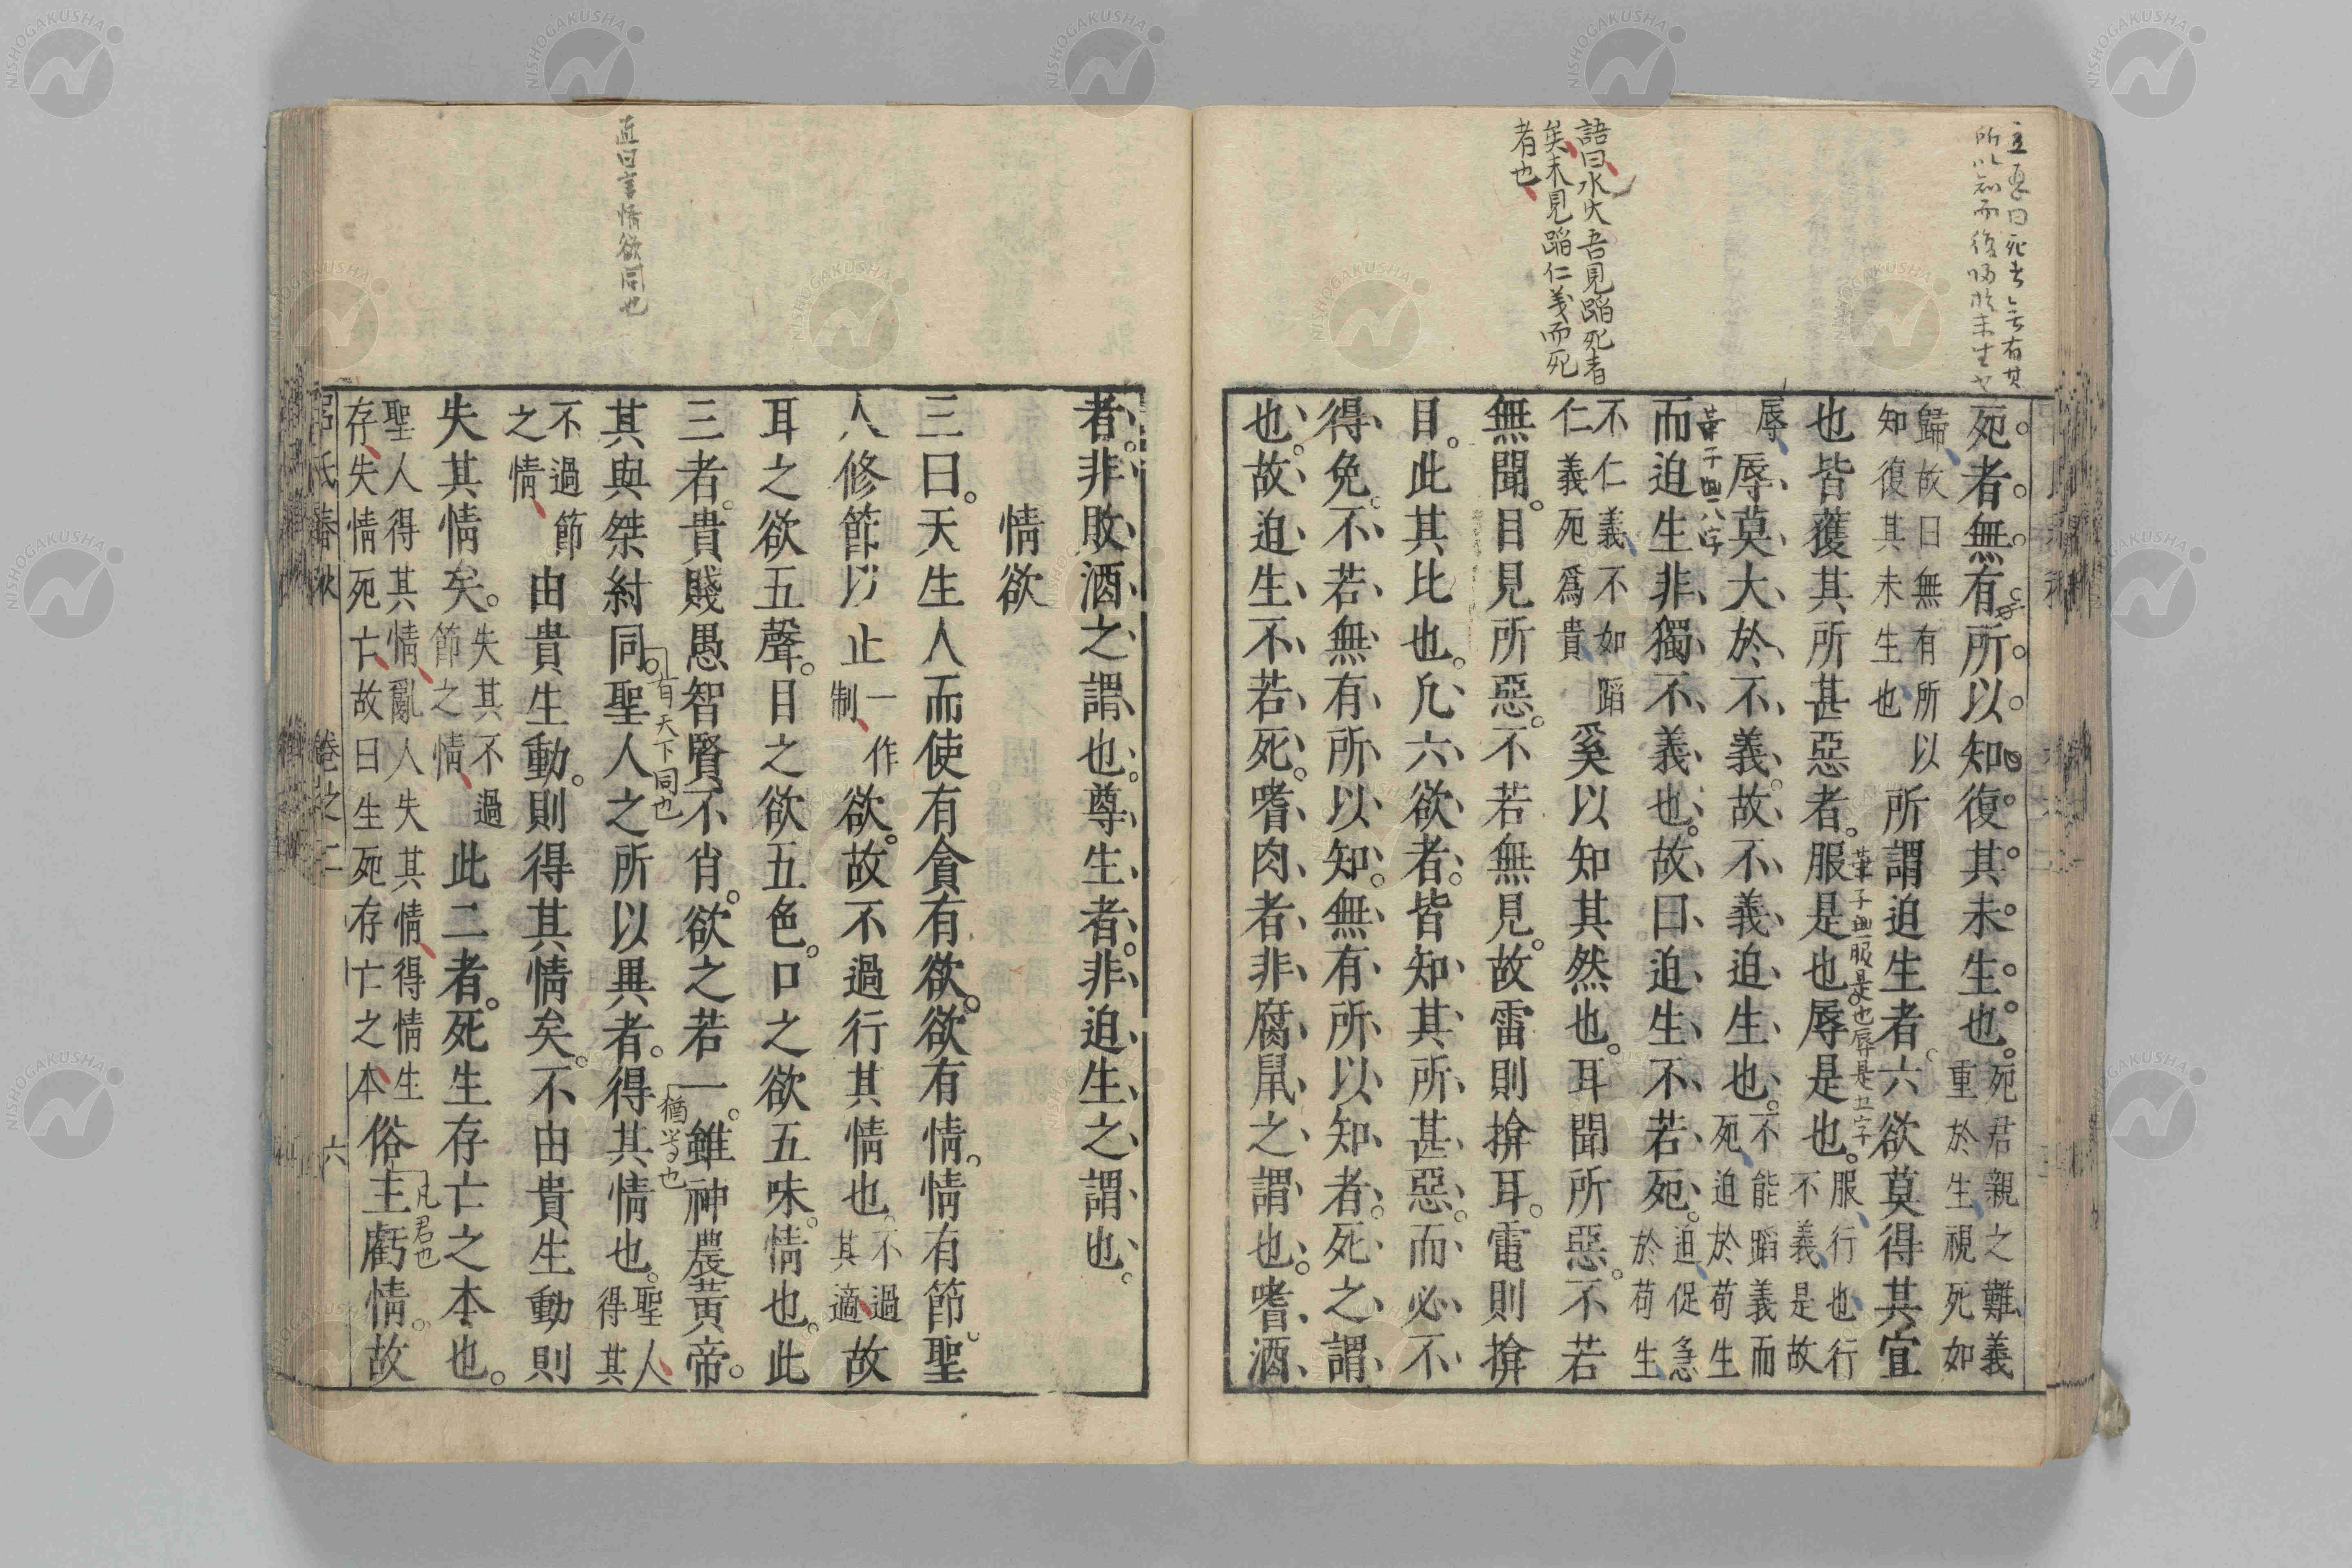 語曰水火吾見蹈死者
矣未見蹈仁義而死
者也
死者無有所以知復其未生也
死君親之難義
重於生視死如
歸故曰無有所以
知復其未生也
所謂迫生者六欲莫得其宜
也皆獲其所甚惡者服是也辱是也
服行也行
不義是故
辱
辱莫大於不義故不義迫生也
不能蹈義而
死迫於苟生
而迫生非獨不義也故曰迫生不若死
迫促急
於苟生
不仁義不如蹈
仁義死爲貴
奚以知其然也耳聞所惡不若
無聞目見所惡不若無見故雷則揜耳電則揜
目此其比也凢六欲者皆知其所甚惡而必不
得免不若無有所以知無有所以知者死之謂
也故迫生不若死嗜肉者非腐鼠之謂也嗜酒
直曰言情欲同也
者非敗酒之謂也尊生者非迫生之謂也
情欲
三曰天生人而使有貪有欲欲有情情有節聖
人修節以止
一作
制
欲故不過行其情也
不過
其適
故
耳之欲五聲目之欲五色口之欲五味情也此
三者貴賤愚智賢不肖欲之若一雖神農黃帝
猶若也
其與桀紂同聖人之所以異者得其情也
有天下同也
聖人
得其
不過節
之情
由貴生動則得其情矣不由貴生動則
失其情矣
失其不過
節之情
此二者死生存亡之本也
聖人得其情亂人失其情得情生
存失情死亡故曰生死存亡之本
俗主虧情故
凡君也
呂氏春秋 卷之二 六